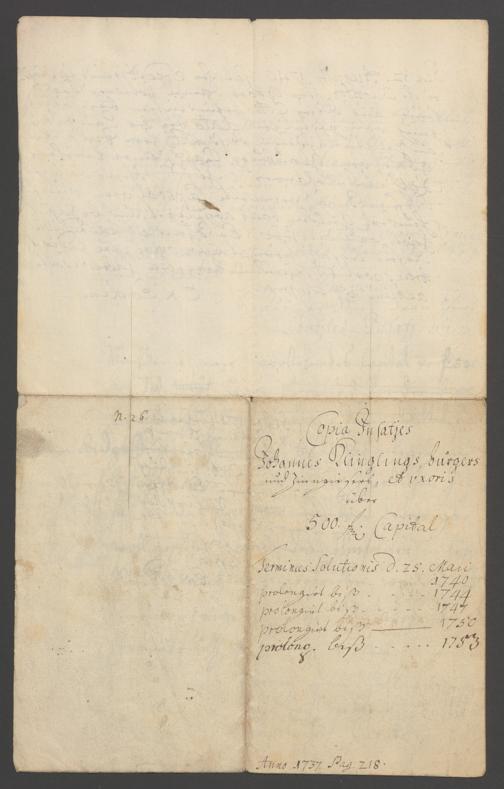 N. 26.
Copia Insatzes
Johannes Klinglings, burgers
und Zinngiesers, et uxoris
über
500. fl. Capital
Terminus Solutionis d. 25. Maii
1740
prolongirt biß . . . . 1744
prolongirt biß . . . . 1747
prolongirt biß —— 1750
prolong. biß . . . . 1753
Anno 1737. Pag. 218.